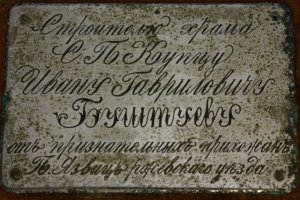 Строителю храма
С.П. Купцу
Ивану Гавриловичу
Буштуеву
отъ признательныхъ прихожанъ
П. Язвищъ ржевскаго уѣзда